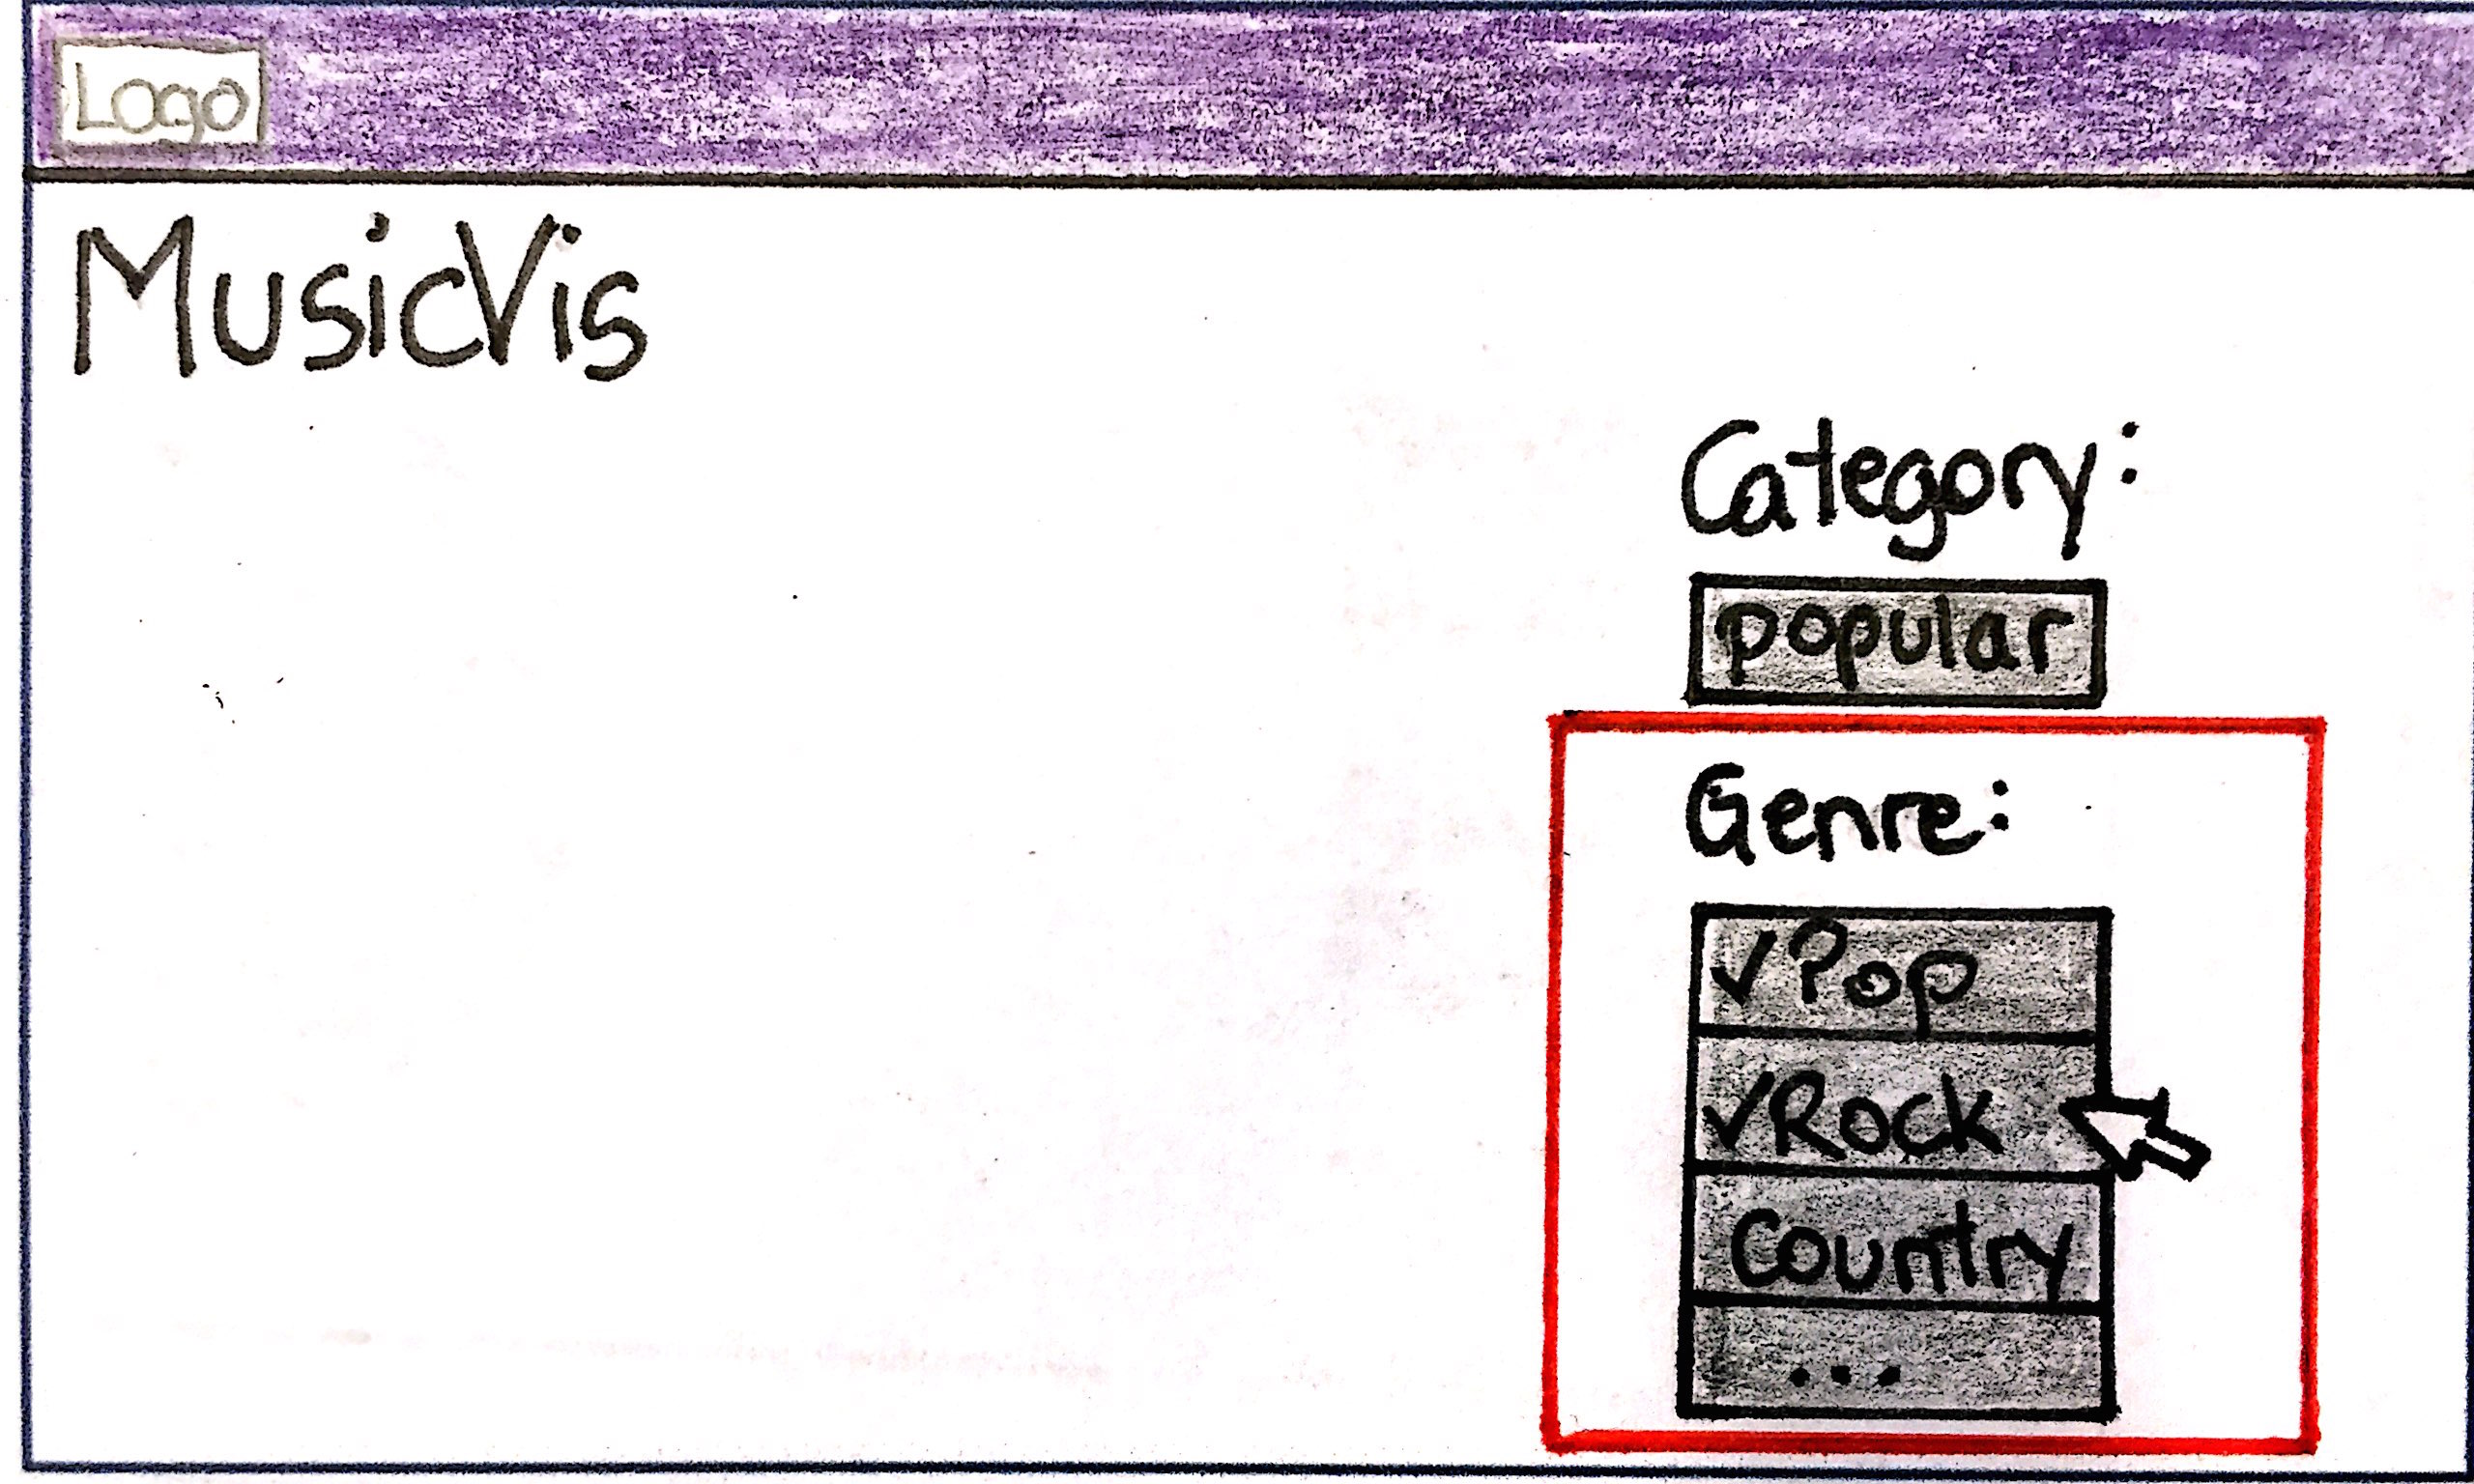 Logo
MusicVis
Category:
popular
Genre:
✓Pop
✓Rock
Country
...